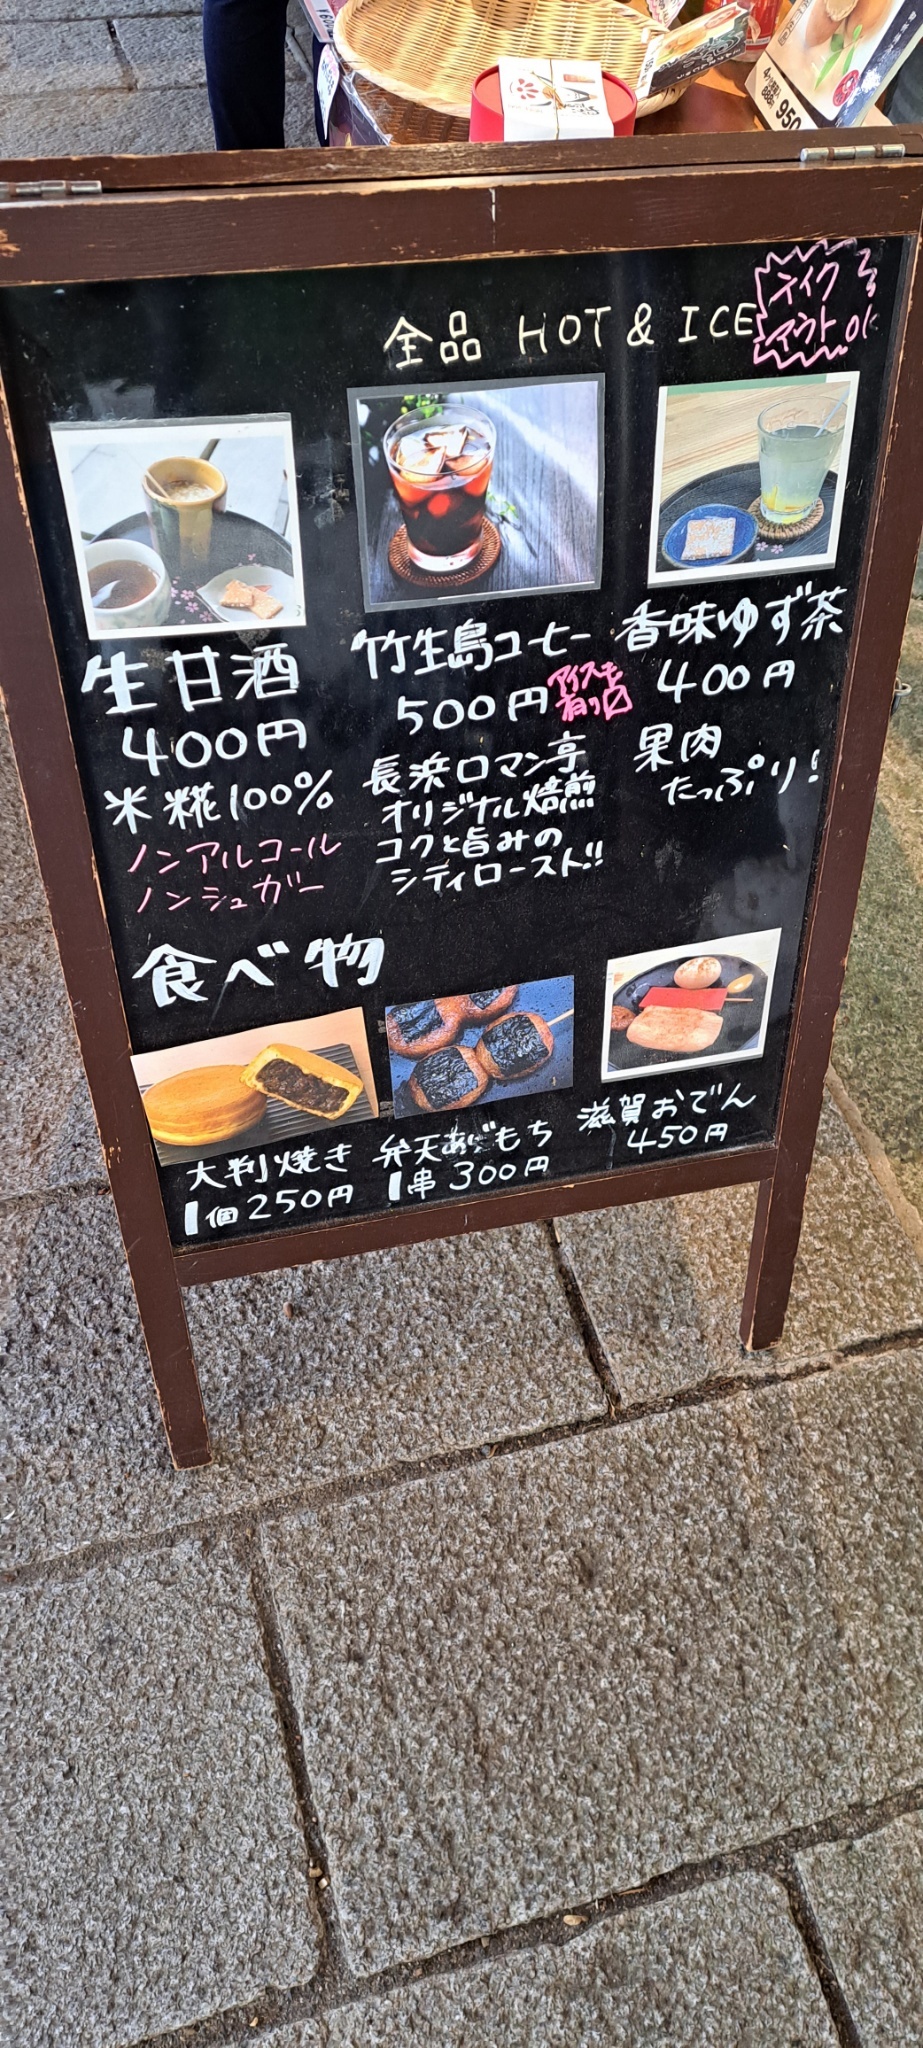 950
全品 HOT & ICE
テイク
アウト OK
生甘酒
400円
米糀100%
ノンアルコール
ノンシュガー
竹生島コーヒー
500円
アイスも
有り〼
長浜ロマン亭
オリジナル焙煎
コクと旨みの
シティロースト!!
香味ゆず茶
400円
果肉
たっぷり!
食べ物
大判焼き
1個250円
弁天あげもち
1串300円
滋賀おでん
450円